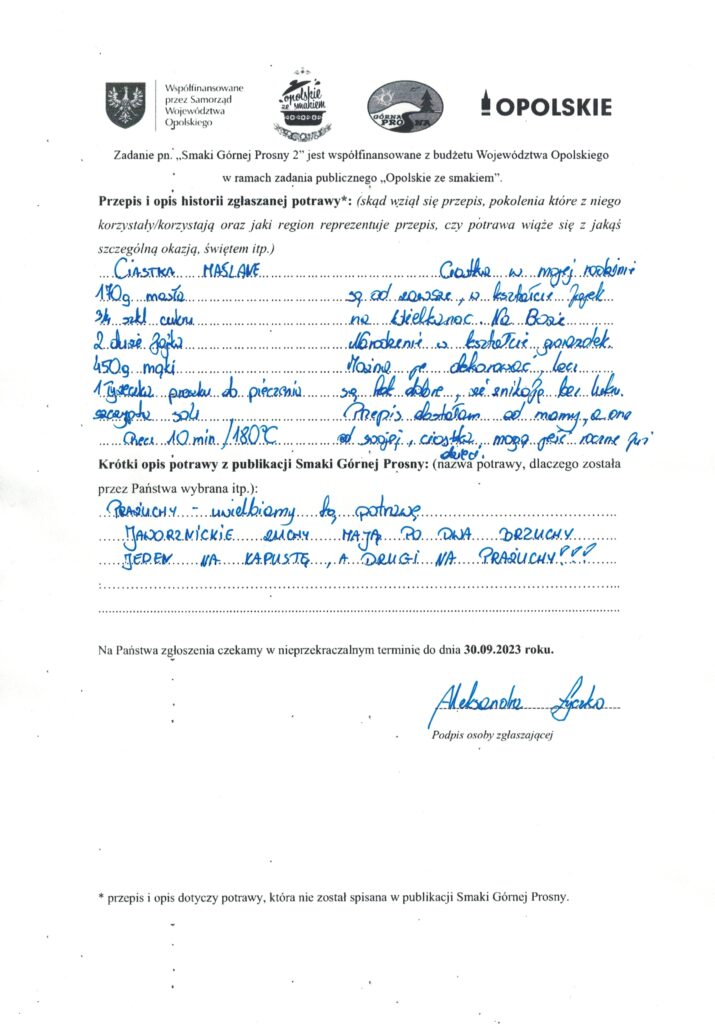 Współfinansowane
przez Samorząd
Województwa
Opolskiego
opolskie
ze smakiem
GÓRNA
PROSNA
OPOLSKIE
Zadanie pn. „Smaki Górnej Prosny 2” jest współfinansowane z budżetu Województwa Opolskiego
w ramach zadania publicznego „Opolskie ze smakiem”.
Przepis i opis historii zgłaszanej potrawy*: (skąd wziął się przepis, pokolenia które z niego
korzystały/korzystają oraz jaki region reprezentuje przepis, czy potrawa wiąże się z jakąś
szczególną okazją, świętem itp.)
CIASTKA MAŚLANE Ciastka w mojej rodzinie
170g masła są od zawsze, w kształcie jajek
3/4 szkl cukru na Wielkanoc. Na Boże
2 duże jajka Narodzenie w kształcie gwiazdek.
450g mąki Można je dekorować, lecz
1 łyżeczka proszku do pieczenia są tak dobre, że znikają bez lukru.
szczypta soli Przepis dostałam od mamy, a ona
Piec 10 min./180°C od swojej, ciastka mogą jeść roczne już
dzieci.
Krótki opis potrawy z publikacji Smaki Górnej Prosny: (nazwa potrawy, dlaczego została
przez Państwa wybrana itp.):
PRAŻUCHY - uwielbiamy tą potrawę
JAWORZNICKIE ZUCHY MAJĄ PO DWA BRZUCHY
JEDEN NA KAPUSTĘ, A DRUGI NA PRAŻUCHY!!!
Na Państwa zgłoszenia czekamy w nieprzekraczalnym terminie do dnia 30.09.2023 roku.
Aleksandra Łyczko
Podpis osoby zgłaszającej
* przepis i opis dotyczy potrawy, która nie został spisana w publikacji Smaki Górnej Prosny.